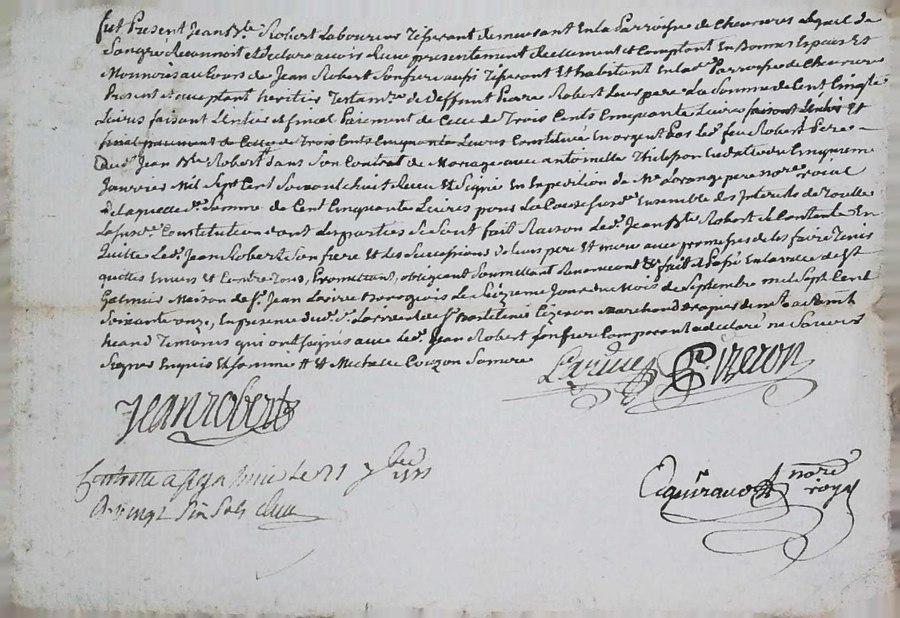 fut Present Jean Bte Robert Laboureur Tisserant demeurant En la Parroisse de Chevrieres Lequel de
Son gré Reconnoit et declare avoir Reçu presentement Reelement et Comptant En Bonnes Especes Et
Monnoies au Cours de Jean Robert Son frere aussi Tisserant Et habitant En lad. Parroisse de Chevrieres
Present et acceptant heritier Testamre de deffunt Pierre Robert Leur pere La Somme de Cent Cinqte
Livres faisant L'entier et final Paiement de Celle de Trois Cents Cinquante Livres faisant L'entier et
final paiement de Celle de Trois Cents Cinquante Livres Constituée En argent Par led. feu Robert Pere
aud. Jean Bte Robert dans Son Contrat de Mariage avec antoinette Thelisson En datte du Cinquieme
Janvier Mil Sept Cent Soixante huit Reçu Et Signé En Expedition de Me Larange pere nore roial
De laquelle de. Somme de Cent Cinquante Livres pour la Cause Susde. Ensemble des Interets de
La Susde. Constitution dont Les parties Se Sont fait Raison Led. Jean Bte Robert Se Contente En
Quitte Led. Jean Robert Son frere Et les Successions de leurs pere Et mere avec promesse de les faire Tenir
quittes Envers Et Contre Tous, Promettant, obligeant Soumettant Renonceant &c fait & Passé En la ville de St
Galmier Maison de Sr. Jean Larive Bourgeois Le Seizieme Jour du Mois de Septembre mil Sept Cent
Soixante onze, En presence dud. Sr. Larive et de Sr. Bartelemis Cizeron Marchand Drapier de
Temoins qui ont Signés avec led. Jean Robert Son frere Comparant a declaré ne Scavoir
Signer Enquis Et Sommé Et Michelle Coizon Sa mere
Larive Cizeron
Jean robert
Controllé a St Galmier le 21 7bre 1771
R vingt Six Sols
Eyguiraud nore royal